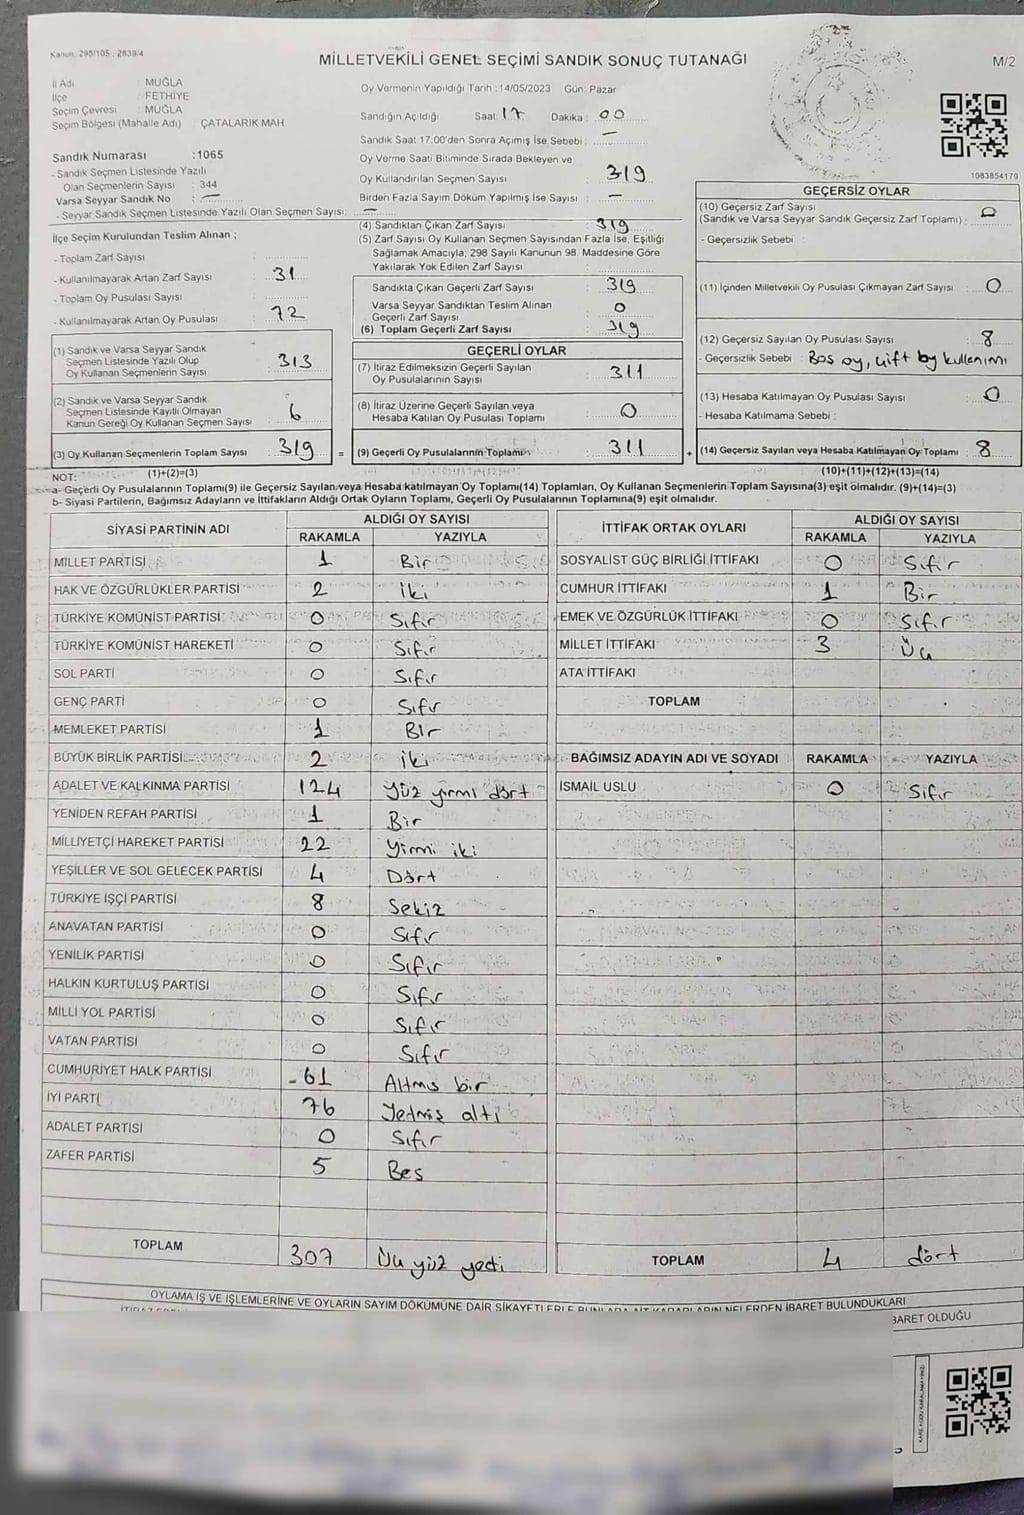 Kanun: 298/105 , 2839/4
MİLLETVEKİLİ GENEL SEÇİMİ SANDIK SONUÇ TUTANAĞI
M/2
İl Adı : MUĞLA
İlçe : FETHİYE
Seçim Çevresi : MUĞLA
Seçim Bölgesi (Mahalle Adı) : ÇATALARIK MAH.
Sandık Numarası :1065
- Sandık Seçmen Listesinde Yazılı
Olan Seçmenlerin Sayısı : 344
Varsa Seyyar Sandık No : —
- Seyyar Sandık Seçmen Listesinde Yazılı Olan Seçmen Sayısı: —
İlçe Seçim Kurulundan Teslim Alınan ;
- Toplam Zarf Sayısı :
- Kullanılmayarak Artan Zarf Sayısı : 31
- Toplam Oy Pusulası Sayısı :
- Kullanılmayarak Artan Oy Pusulası : 72
(1) Sandık ve Varsa Seyyar Sandık
Seçmen Listesinde Yazılı Olup
Oy Kullanan Seçmenlerin Sayısı : 313
(2) Sandık ve Varsa Seyyar Sandık
Seçmen Listesinde Kayıtlı Olmayan
Kanun Gereği Oy Kullanan Seçmen Sayısı : 6
(3) Oy Kullanan Seçmenlerin Toplam Sayısı : 319
Oy Vermenin Yapıldığı Tarih : 14/05/2023 Gün: Pazar
Sandığın Açıldığı Saat: 17 Dakika : 00
Sandık Saat 17:00'den Sonra Açımış İse Sebebi : —
Oy Verme Saati Bitiminde Sırada Bekleyen ve
Oy Kullandırılan Seçmen Sayısı : 319
Birden Fazla Sayım Döküm Yapılmış İse Sayısı : —
(4) Sandıktan Çıkan Zarf Sayısı : 319
(5) Zarf Sayısı Oy Kullanan Seçmen Sayısından Fazla İse, Eşitliği
Sağlamak Amacıyla; 298 Sayılı Kanunun 98. Maddesine Göre
Yakılarak Yok Edilen Zarf Sayısı :
Sandıkta Çıkan Geçerli Zarf Sayısı : 319
Varsa Seyyar Sandıktan Teslim Alınan
Geçerli Zarf Sayısı : 0
(6) Toplam Geçerli Zarf Sayısı : 319
GEÇERLİ OYLAR
(7) İtiraz Edilmeksizin Geçerli Sayılan
Oy Pusulalarının Sayısı : 311
(8) İtiraz Üzerine Geçerli Sayılan veya
Hesaba Katılan Oy Pusulası Toplamı : 0
= (9) Geçerli Oy Pusulalarının Toplamı : 311
1083854179
GEÇERSİZ OYLAR
(10) Geçersiz Zarf Sayısı
(Sandık ve Varsa Seyyar Sandık Geçersiz Zarf Toplamı) : 0
- Geçersizlik Sebebi :
(11) İçinden Milletvekili Oy Pusulası Çıkmayan Zarf Sayısı : 0
(12) Geçersiz Sayılan Oy Pusulası Sayısı : 8
- Geçersizlik Sebebi : Boş oy, çift oy kullanımı
(13) Hesaba Katılmayan Oy Pusulası Sayısı : 0
- Hesaba Katılmama Sebebi :
+ (14) Geçersiz Sayılan veya Hesaba Katılmayan Oy Toplamı : 8
NOT: (1)+(2)=(3) (10)+(11)+(12)+(13)=(14)
a- Geçerli Oy Pusulalarının Toplamı(9) ile Geçersiz Sayılan veya Hesaba katılmayan Oy Toplamı(14) Toplamları, Oy Kullanan Seçmenlerin Toplam Sayısına(3) eşit olmalıdır. (9)+(14)=(3)
b- Siyasi Partilerin, Bağımsız Adayların ve İttifakların Aldığı Ortak Oyların Toplamı, Geçerli Oy Pusulalarının Toplamına(9) eşit olmalıdır.
SİYASİ PARTİNİN ADI ALDIĞI OY SAYISI
RAKAMLA YAZIYLA
MİLLET PARTİSİ 1 Bir
HAK VE ÖZGÜRLÜKLER PARTİSİ 2 İki
TÜRKİYE KOMÜNİST PARTİSİ 0 Sıfır
TÜRKİYE KOMÜNİST HAREKETİ 0 Sıfır
SOL PARTİ 0 Sıfır
GENÇ PARTİ 0 Sıfır
MEMLEKET PARTİSİ 1 Bir
BÜYÜK BİRLİK PARTİSİ 2 iki
ADALET VE KALKINMA PARTİSİ 124 Yüz yirmi dört
YENİDEN REFAH PARTİSİ 1 Bir
MİLLİYETÇİ HAREKET PARTİSİ 22 Yirmi iki
YEŞİLLER VE SOL GELECEK PARTİSİ 4 Dört
TÜRKİYE İŞÇİ PARTİSİ 8 Sekiz
ANAVATAN PARTİSİ 0 Sıfır
YENİLİK PARTİSİ 0 Sıfır
HALKIN KURTULUŞ PARTİSİ 0 Sıfır
MİLLİ YOL PARTİSİ 0 Sıfır
VATAN PARTİSİ 0 Sıfır
CUMHURİYET HALK PARTİSİ 61 Altmış bir
İYİ PARTİ 76 Yetmiş altı
ADALET PARTİSİ 0 Sıfır
ZAFER PARTİSİ 5 Beş
TOPLAM 307 Üç yüz yedi
İTTİFAK ORTAK OYLARI ALDIĞI OY SAYISI
RAKAMLA YAZIYLA
SOSYALİST GÜÇ BİRLİĞİ İTTİFAKI 0 Sıfır
CUMHUR İTTİFAKI 1 Bir
EMEK VE ÖZGÜRLÜK İTTİFAKI 0 Sıfır
MİLLET İTTİFAKI 3 Üç
ATA İTTİFAKI
TOPLAM
BAĞIMSIZ ADAYIN ADI VE SOYADI RAKAMLA YAZIYLA
İSMAİL USLU 0 Sıfır
TOPLAM 4 dört
OYLAMA İŞ VE İŞLEMLERİNE VE OYLARIN SAYIM DÖKÜMÜNE DAİR ŞİKAYETLERLE BUNLARA AİT KARARLARIN NELERDEN İBARET BULUNDUKLARI
BARET OLDUĞU